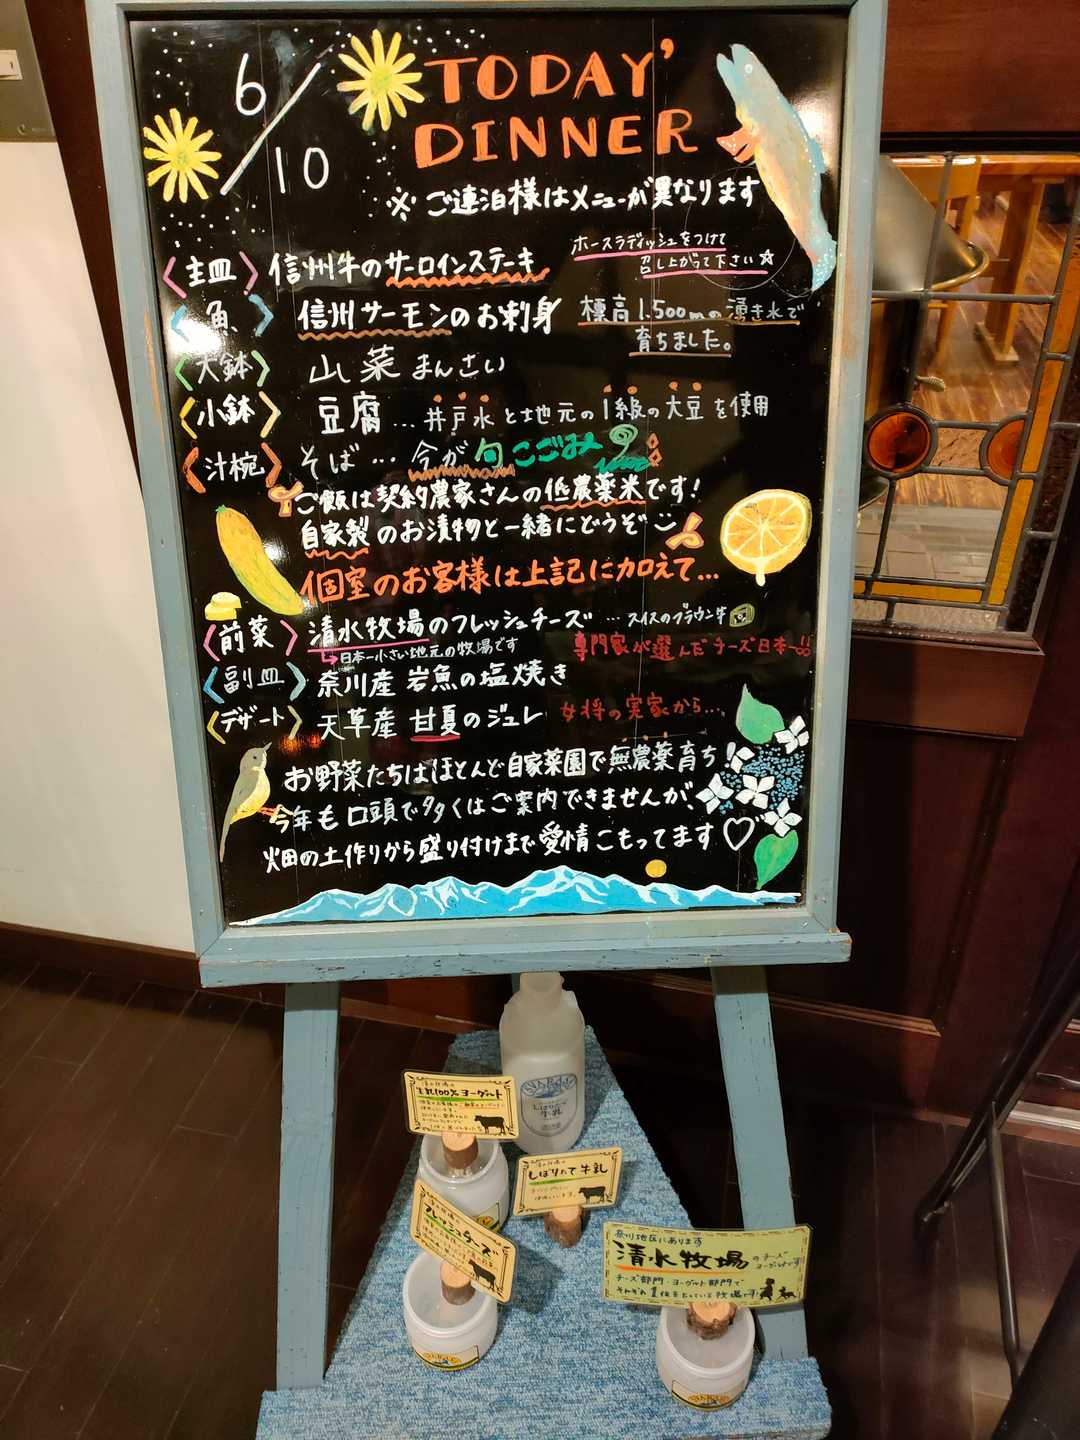 6/10
TODAY'
DINNER
※ ご連泊様はメニューが異なります
〈主皿〉 信州牛のサーロインステーキ
ホースラディッシュをつけて
召し上がって下さい☆
〈魚〉 信州サーモンのお刺身
標高1,500mの湧き水で
育ちました。
〈大鉢〉 山菜まんさい
〈小鉢〉 豆腐…井戸水と地元の1級の大豆を使用
〈汁椀〉 そば…今が旬こごみ
ご飯は契約農家さんの低農薬米です!
自家製のお漬物と一緒にどうぞ
個室のお客様は上記に加えて…
〈前菜〉 清水牧場のフレッシュチーズ …スイスのブラウン牛
日本一小さい地元の牧場です
専門家が選んだチーズ日本一!!
〈副皿〉 奈川産 岩魚の塩焼き
〈デザート〉 天草産 甘夏のジュレ
女将の実家から…
お野菜たちはほとんど自家菜園で無農薬育ち!
今年も口頭で多くはご案内できませんが、
畑の土作りから盛り付けまで愛情こもってます♡
生乳100%ヨーグルト
しぼりたて
牛乳
しぼりたて牛乳
フレッシュチーズ
奈川地区にあります
清水牧場のチーズ
ヨーグルトです
チーズ部門・ヨーグルト部門で
それぞれ1位をとっている牧場です